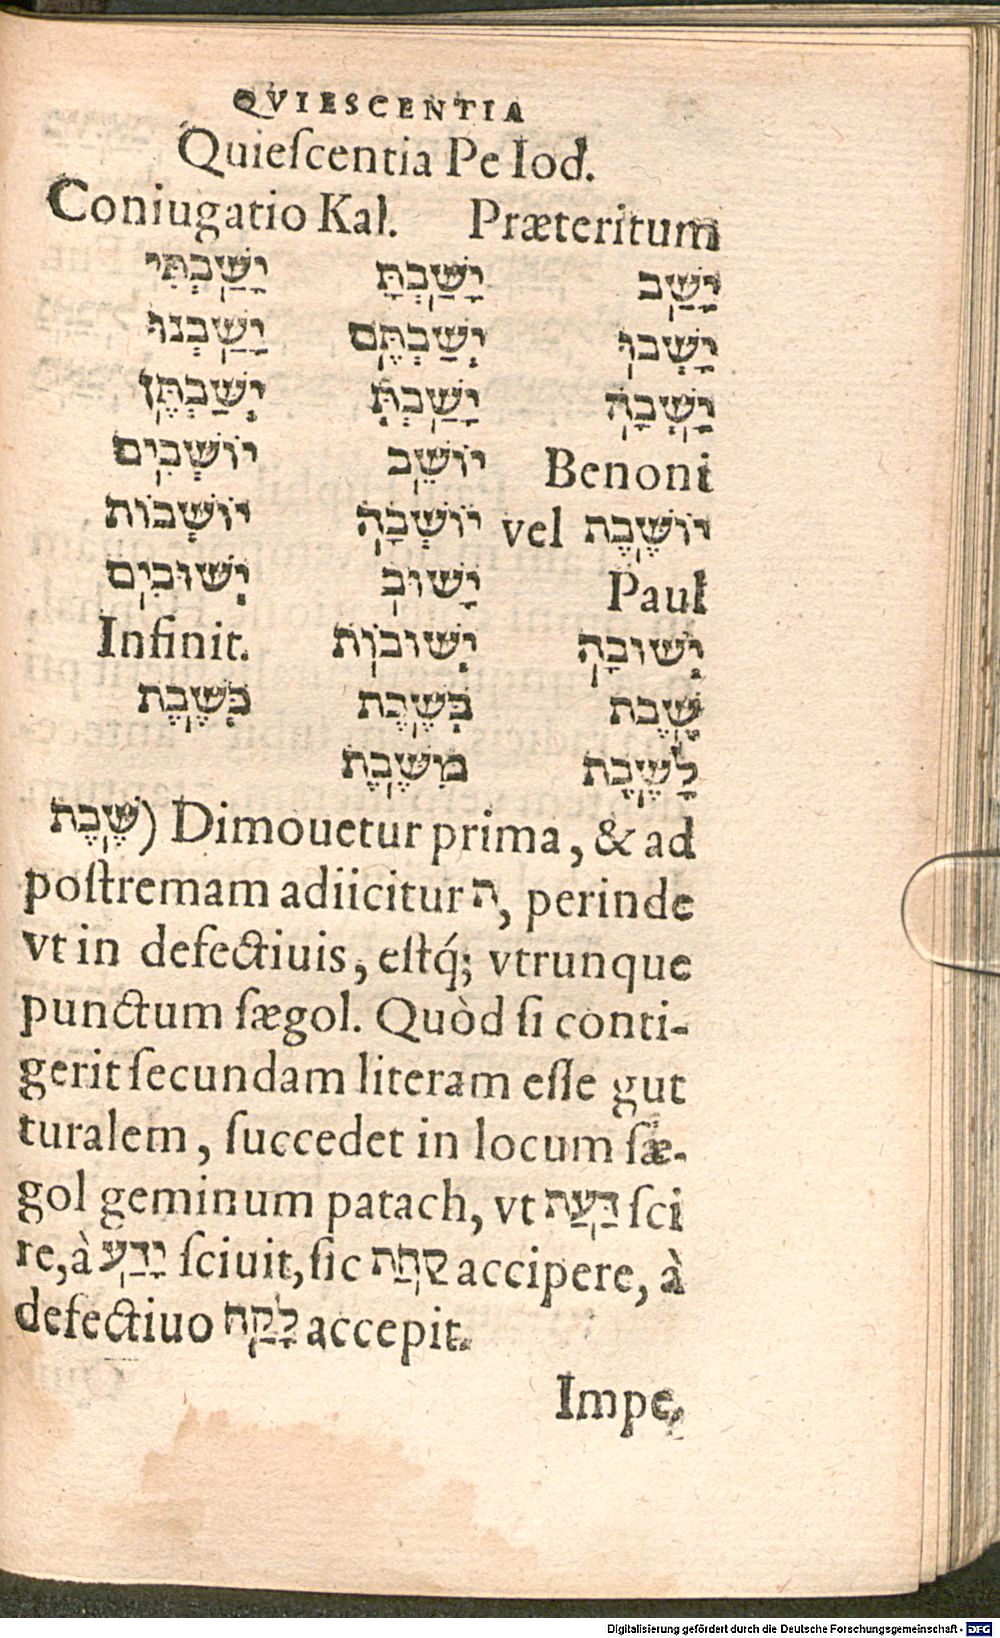 QVIESCENTIA
Quieſcentia Pe Iod.
Coniugatio Kal. Præteritum
יָשַׁב יָשַׁבְתָּ יָשַׁבְתִּי
יָשְׁבוּ יְשַׁבְתֶּם יָשַׁבְנוּ
יָשְׁבָה יָשַׁבְתְּ יְשַׁבְתֶּן
Benoni יוֹשֵׁב יוֹשְׁבִים
יוֹשֶׁבֶת vel יוֹשְׁבָה יוֹשְׁבוֹת
Paul יָשׁוּב יְשׁוּבִים
יְשׁוּבָה יְשׁוּבוֹת Infinit.
שֶׁבֶת בְּשֶׁבֶת כְּשֶׁבֶת
לָשֶׁבֶת מִשֶּׁבֶת
שֶׁבֶת) Dimouetur prima, & ad
poſtremam adiicitur ת, perinde
vt in defectiuis, eſtq́; vtrunque
punctum ſægol. Quòd ſi conti-
gerit ſecundam literam eſſe gut
turalem, ſuccedet in locum ſæ-
gol geminum patach, vt דַּעַת ſci
re, à יָדַע ſciuit, ſic קַחַת accipere, à
defectiuo לָקַח accepit.
Impe.
Digitalisierung gefördert durch die Deutsche Forschungsgemeinschaft - DFG